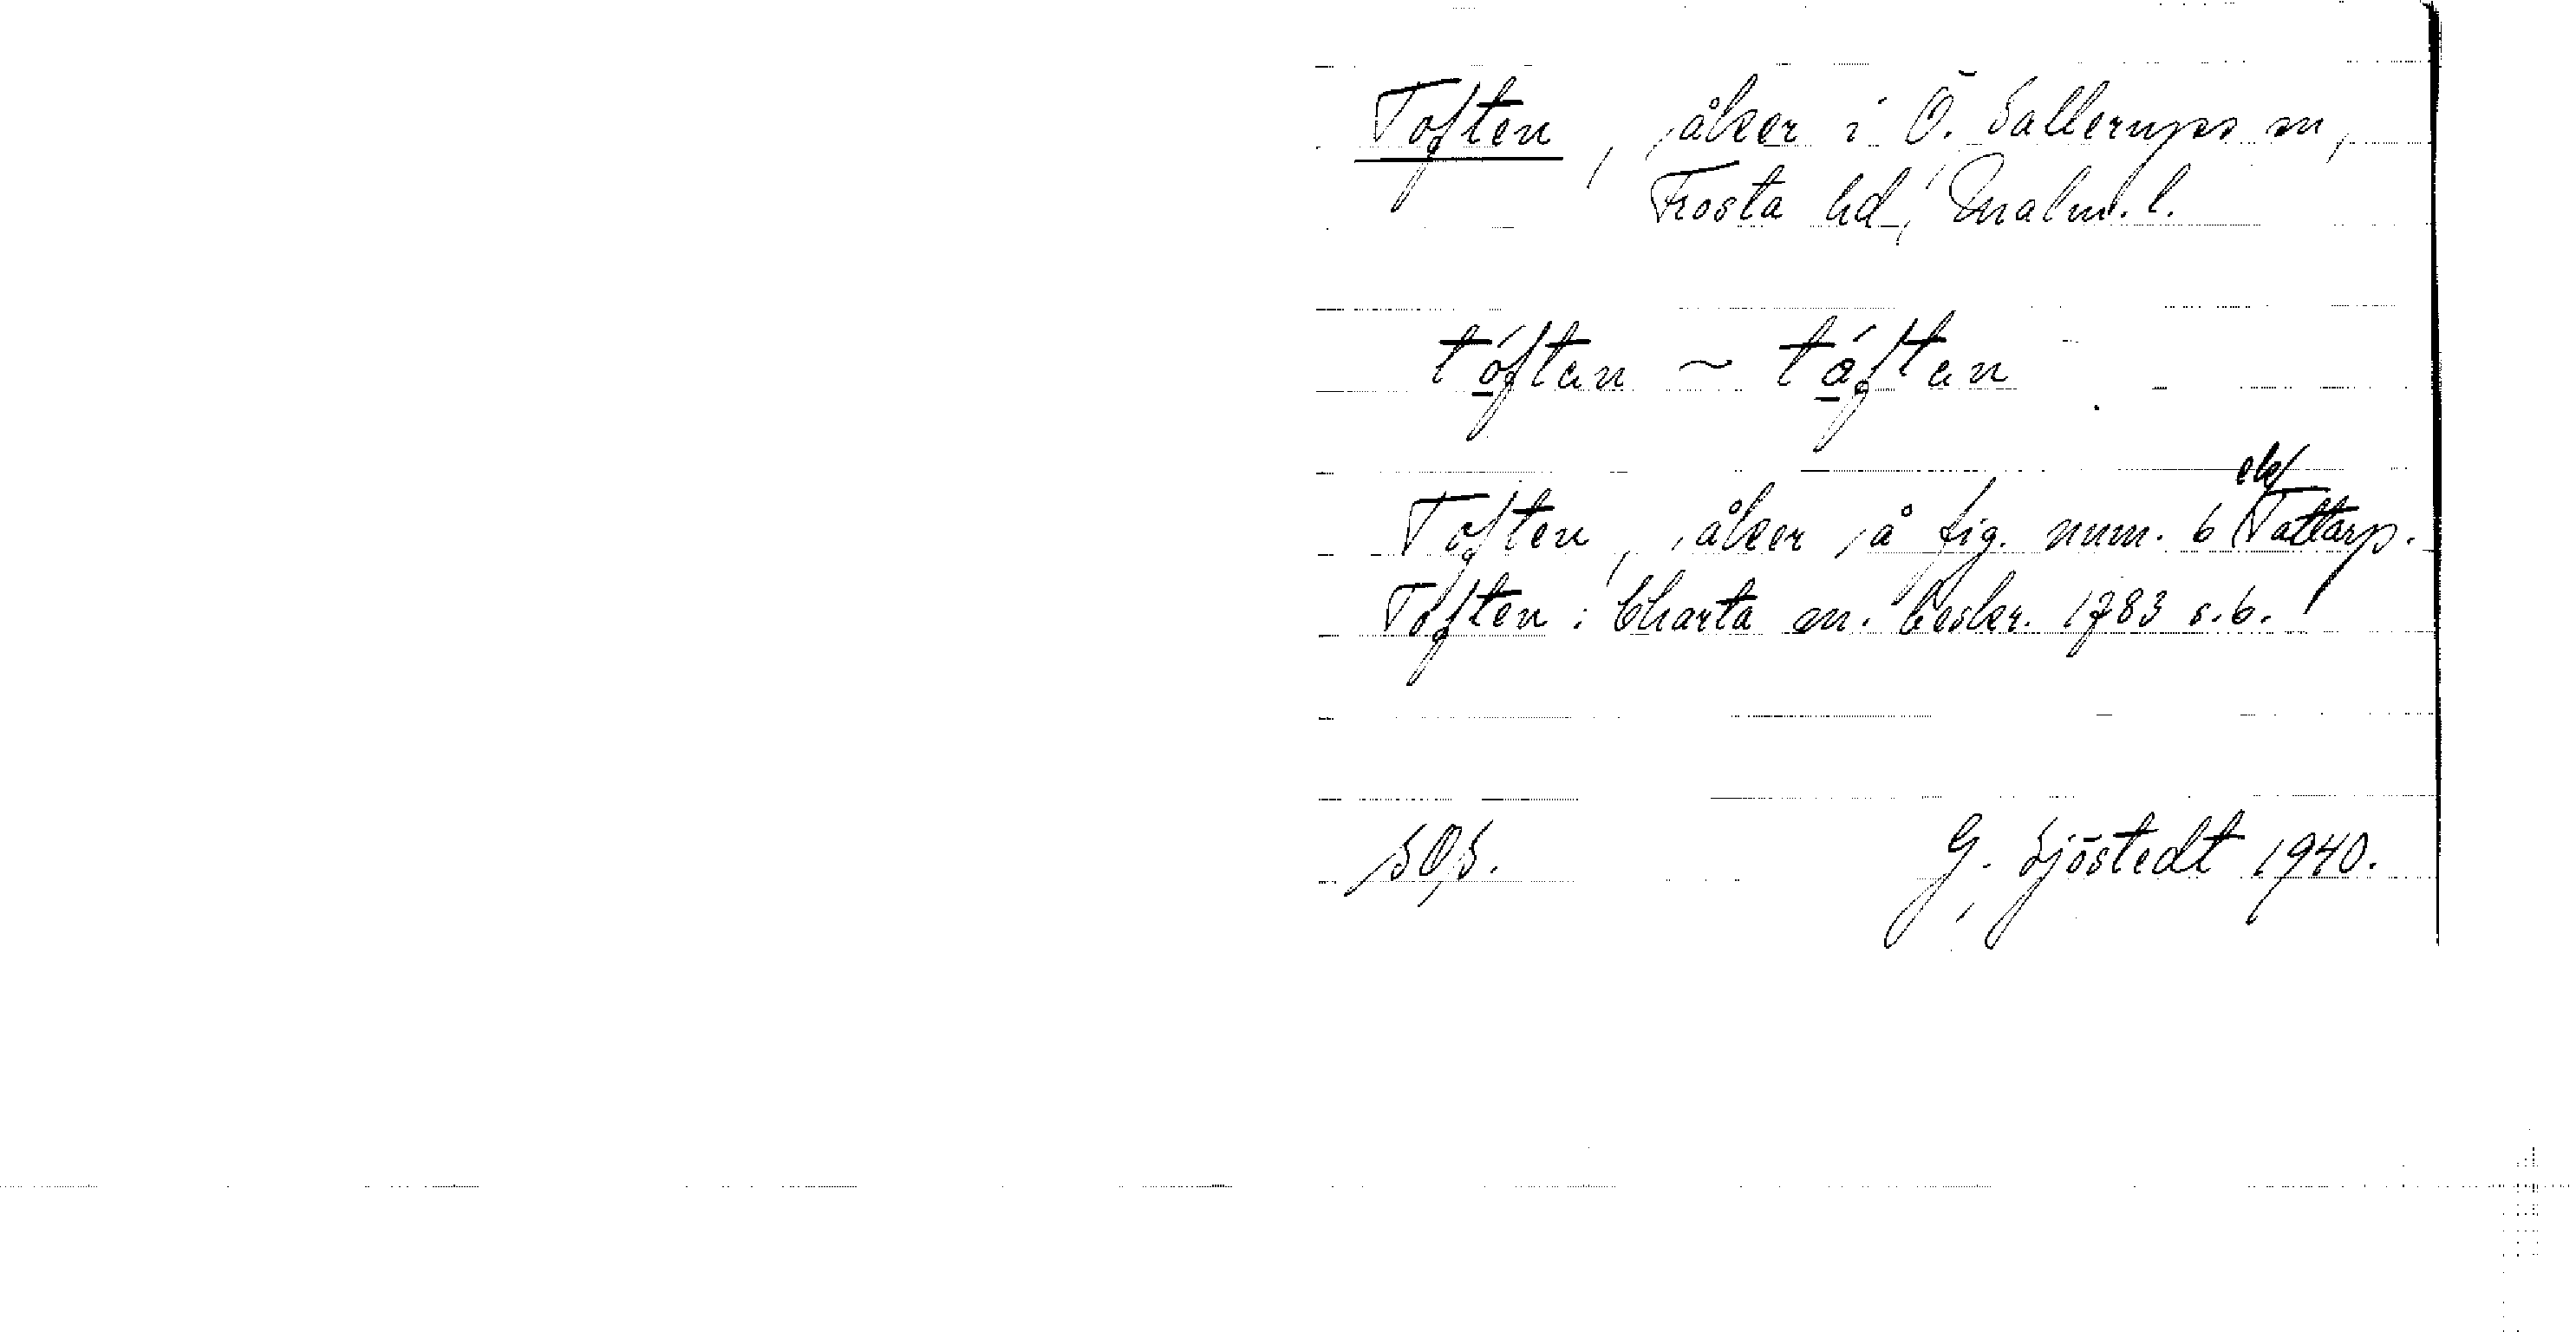 Toften, åker i Ö. Sallerups sn,
Frosta hd, Malm. l.
tóften ~ tåften
Toften, åker å fig. num. 6 Tattarp.
Toften: Charta m. beskr. 1783 s. 6.
SOS.
G. Sjöstedt 1940.